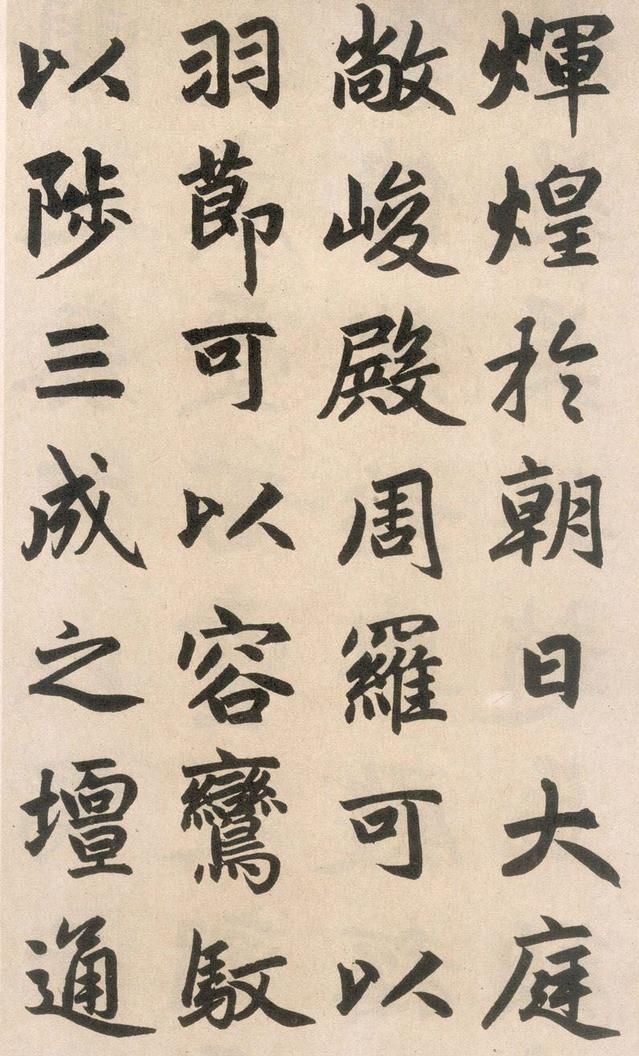 輝煌於朝日大庭
敞峻殿周羅可以
羽莭可以容鸞馭
以陟三成之壇通